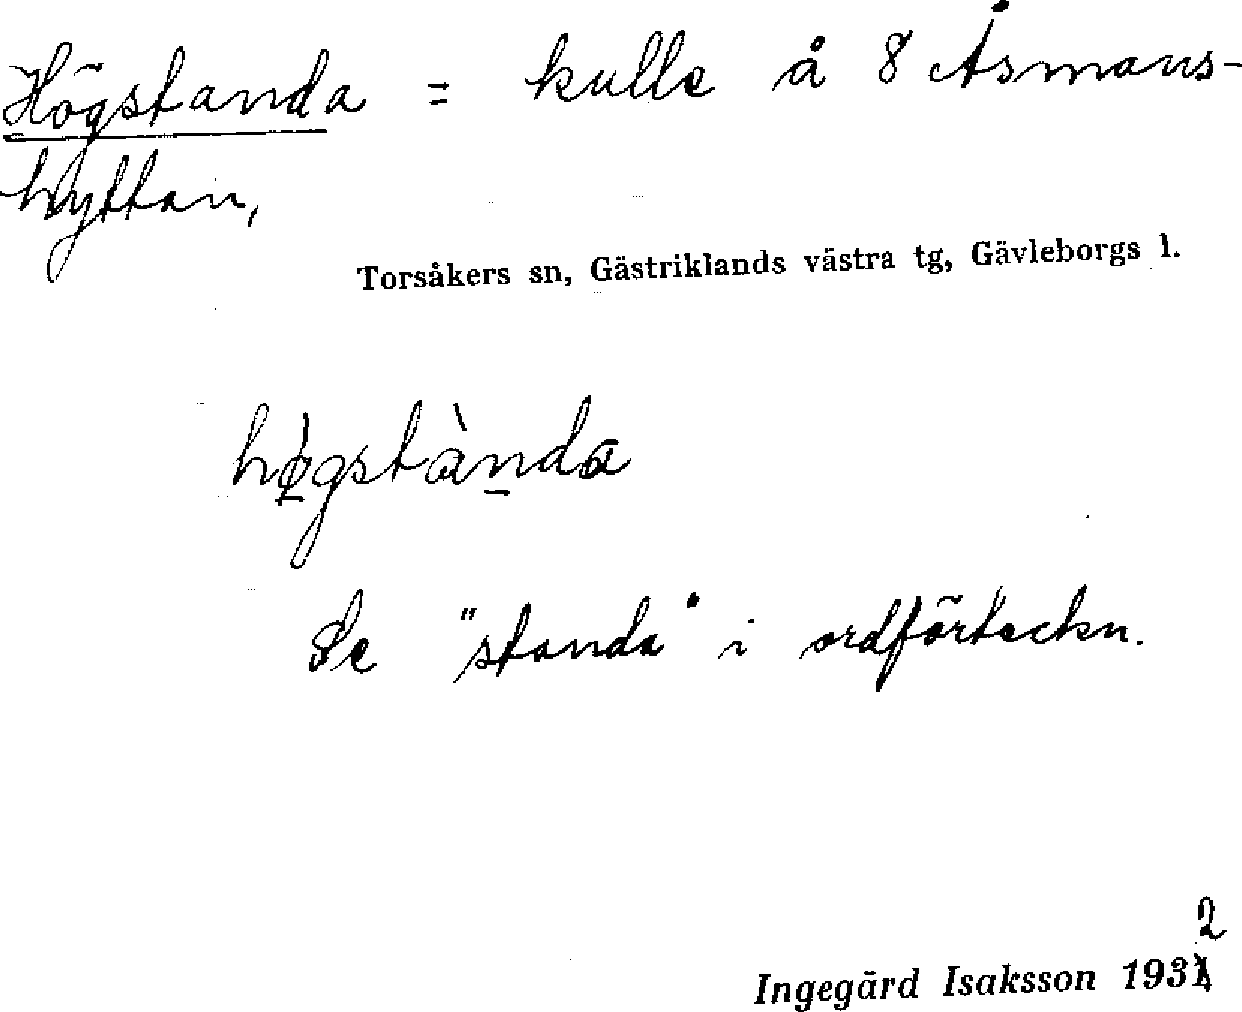 Högstanda = kulle å 8 Åsmans-
hyttan,
Torsåkers sn, Gästriklands västra tg, Gävleborgs l.
hø̀gstànda
Se "standa" i ordförteckn.
2
Ingegärd Isaksson 1931